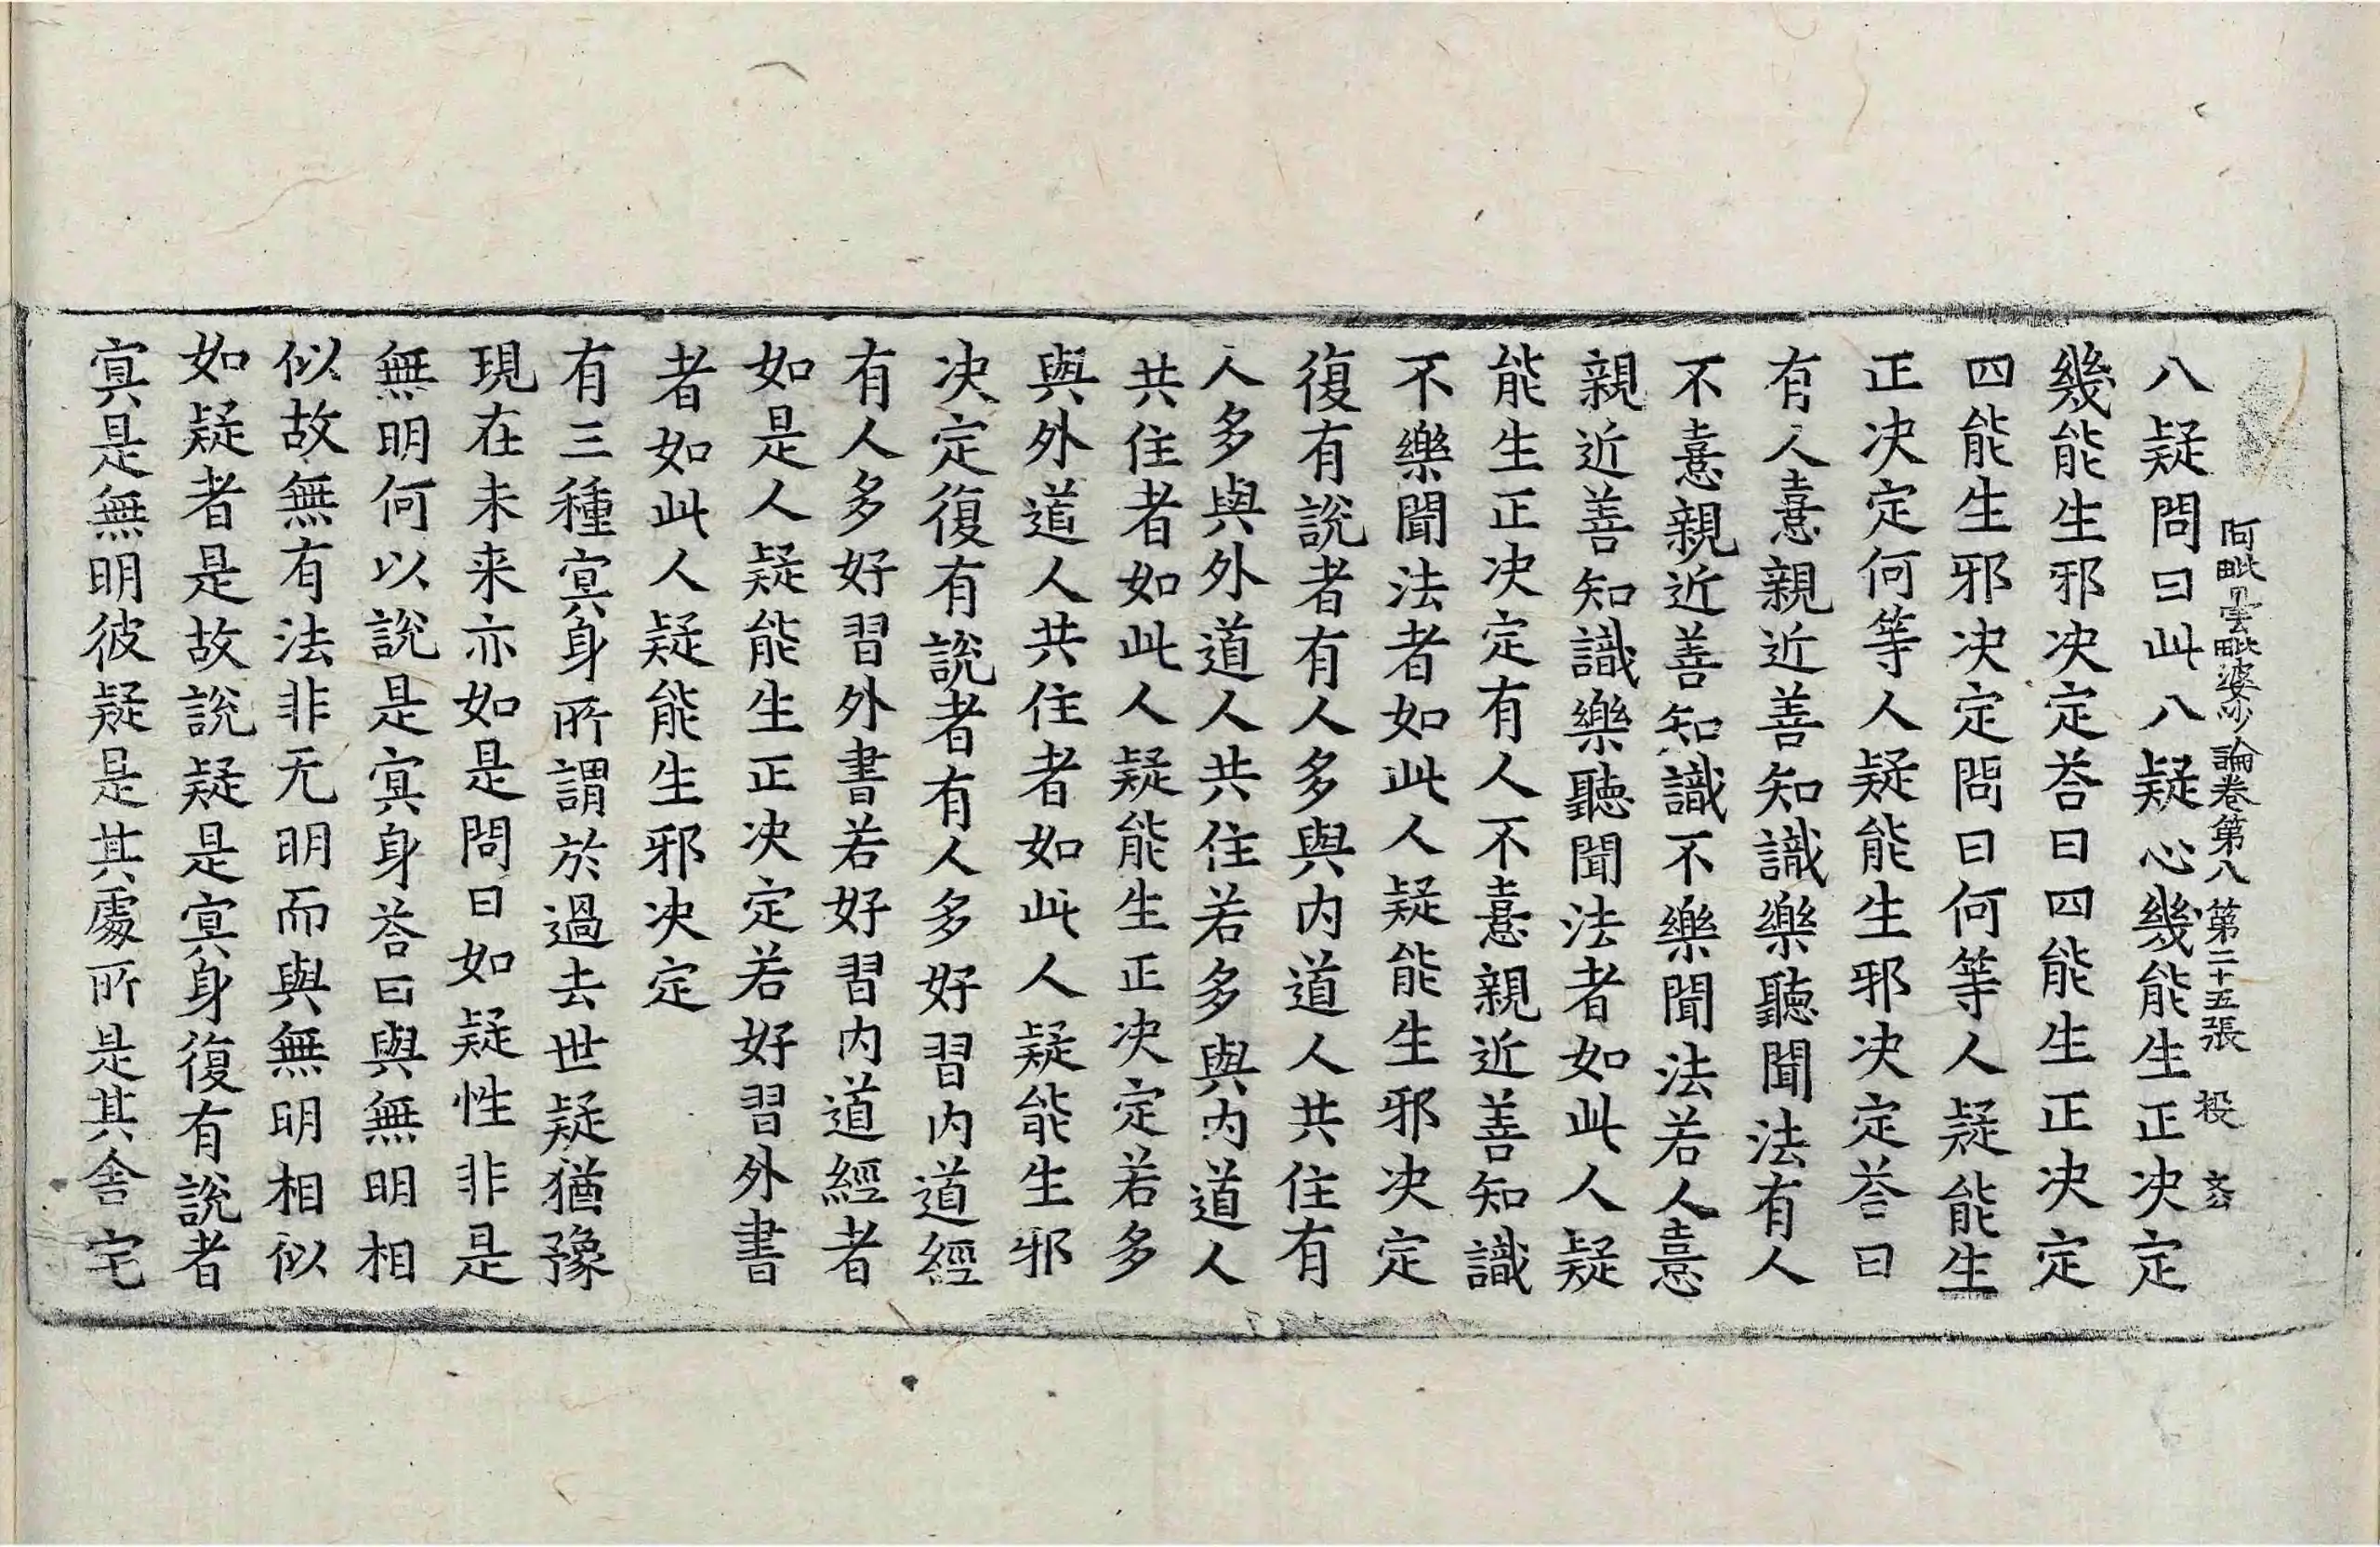 阿毗曇毗婆沙論卷第八 第二十五張 投
八疑問曰此八疑心幾能生正决定
幾能生邪决定荅曰四能生正决定
四能生邪决定問曰何等人疑能生
正决定何等人疑能生邪决定荅曰
有人憙親近善知識樂聽聞法有人
不憙親近善知識不樂聞法若人憙
親近善知識樂聽聞法者如此人疑
能生正决定有人不憙親近善知識
不樂聞法者如此人疑能生邪决定
復有說者有人多與内道人共住有
人多與外道人共住若多與内道人
共住者如此人疑能生正决定若多
與外道人共住者如此人疑能生邪
决定復有說者有人多好習内道經
有人多好習外書若好習内道經者
如是人疑能生正决定若好習外書
者如此人疑能生邪决定
有三種㝠身所謂於過去世疑猶豫
現在未来亦如是問曰如疑性非是
無明何以說是㝠身荅曰與無明相
似故無有法非无明而與無明相似
如疑者是故說疑是㝠身復有說者
㝠是無明彼疑是其處所是其舍宅